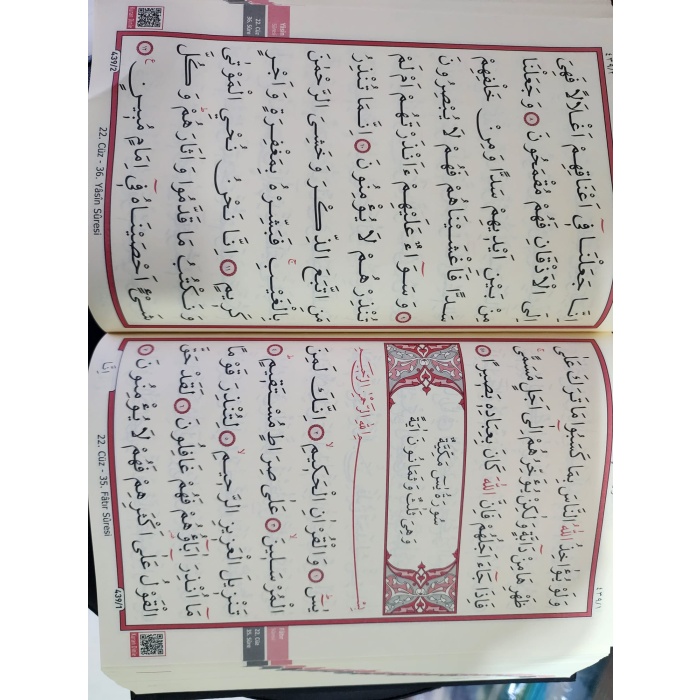 ٤٣٩/١
وَلَوْ يُؤَاخِذُ اللّٰهُ النَّاسَ بِمَا كَسَبُوا مَا تَرَكَ عَلٰى
ظَهْرِهَا مِنْ دَٓابَّةٍ وَلٰكِنْ يُؤَخِّرُهُمْ اِلٰٓى اَجَلٍ مُسَمًّىۚ
فَاِذَا جَٓاءَ اَجَلُهُمْ فَاِنَّ اللّٰهَ كَانَ بِعِبَادِه۪ بَص۪يرًا
سُورَةُ يٰسٓ مَكِّيَّةٌ
وَهِىَ ثَلٰثٌ وَثَمَانُونَ اٰيَةً
بِسْمِ اللّٰهِ الرَّحْمٰنِ الرَّح۪يمِ
يٰسٓ ١ وَالْقُرْاٰنِ الْحَك۪يمِۙ ٢ اِنَّكَ لَمِنَ
الْمُرْسَل۪ينَۙ ٣ عَلٰى صِرَاطٍ مُسْتَق۪يمٍۜ ٤
تَنْز۪يلَ الْعَز۪يزِ الرَّح۪يمِۙ ٥ لِتُنْذِرَ قَوْمًا
مَٓا اُنْذِرَ اٰبَٓاؤُ۬هُمْ فَهُمْ غَافِلُونَ ٦ لَقَدْ حَقَّ
الْقَوْلُ عَلٰٓى اَكْثَرِهِمْ فَهُمْ لَا يُؤْمِنُونَ ٧
اِنَّا
439/1
22. Cüz - 35. Fâtır Sûresi
٤٣٩/٢
اِنَّا جَعَلْنَا ف۪ٓى اَعْنَاقِهِمْ اَغْلَالًا فَهِىَ
اِلَى الْاَذْقَانِ فَهُمْ مُقْمَحُونَ ٨ وَجَعَلْنَا
مِنْ بَيْنِ اَيْد۪يهِمْ سَدًّا وَمِنْ خَلْفِهِمْ
سَدًّا فَاَغْشَيْنَاهُمْ فَهُمْ لَا يُبْصِرُونَ
٩ وَسَوَٓاءٌ عَلَيْهِمْ ءَاَنْذَرْتَهُمْ اَمْ لَمْ
تُنْذِرْهُمْ لَا يُؤْمِنُونَ ١٠ اِنَّمَا تُنْذِرُ
مَنِ اتَّبَعَ الذِّكْرَ وَخَشِىَ الرَّحْمٰنَ
بِالْغَيْبِۚ فَبَشِّرْهُ بِمَغْفِرَةٍ وَاَجْرٍ
كَر۪يمٍ ١١ اِنَّا نَحْنُ نُحْيِى الْمَوْتٰى
وَنَكْتُبُ مَا قَدَّمُوا وَاٰثَارَهُمْۜ وَكُلَّ
شَىْءٍ اَحْصَيْنَاهُ ف۪ٓى اِمَامٍ مُب۪ينٍ۟ ١٢
439/2
22. Cüz - 36. Yâsîn Sûresi